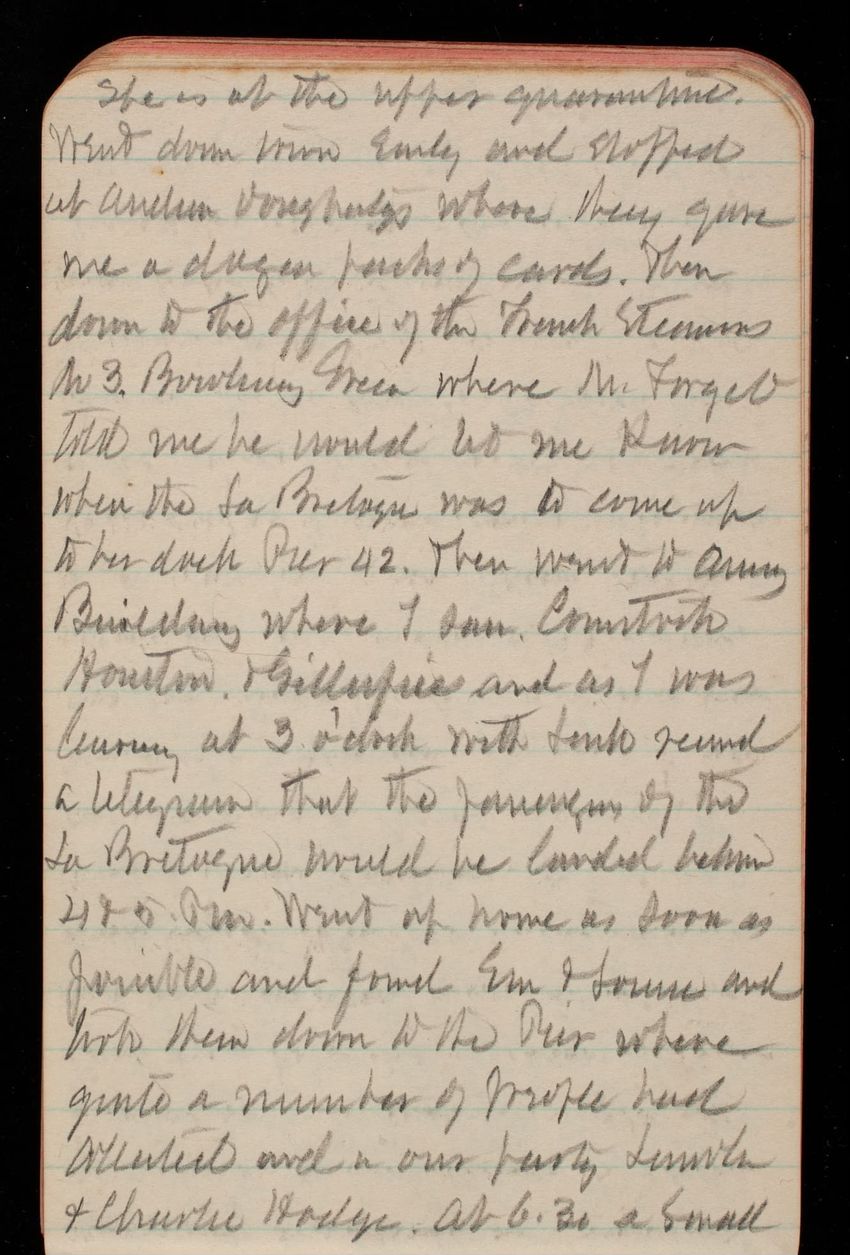 She is at the upper quarantine.
Went down town Early and stopped
at Andrew Dougherty's where they gave
me a dozen packs of cards. Then
down to the office of the French Steamers
No 3. Bowling Green where M. Forget
told me he would let me know
when the La Bretagne was to come up
to her dock Pier 42. Then went to Army
Building where I saw. Comstock
Houston, & Gillespie and as I was
leaving at 3 o'clock with
a telegram that the passengers of the
La Bretagne would be landed between
4 & 5. P.m. Went up home as soon as
possible and found Em & Louise and
took them down to the Pier where
quite a number of people had
collected and in our party Lincoln
& Charlie Hodge. At 6.30 a Small